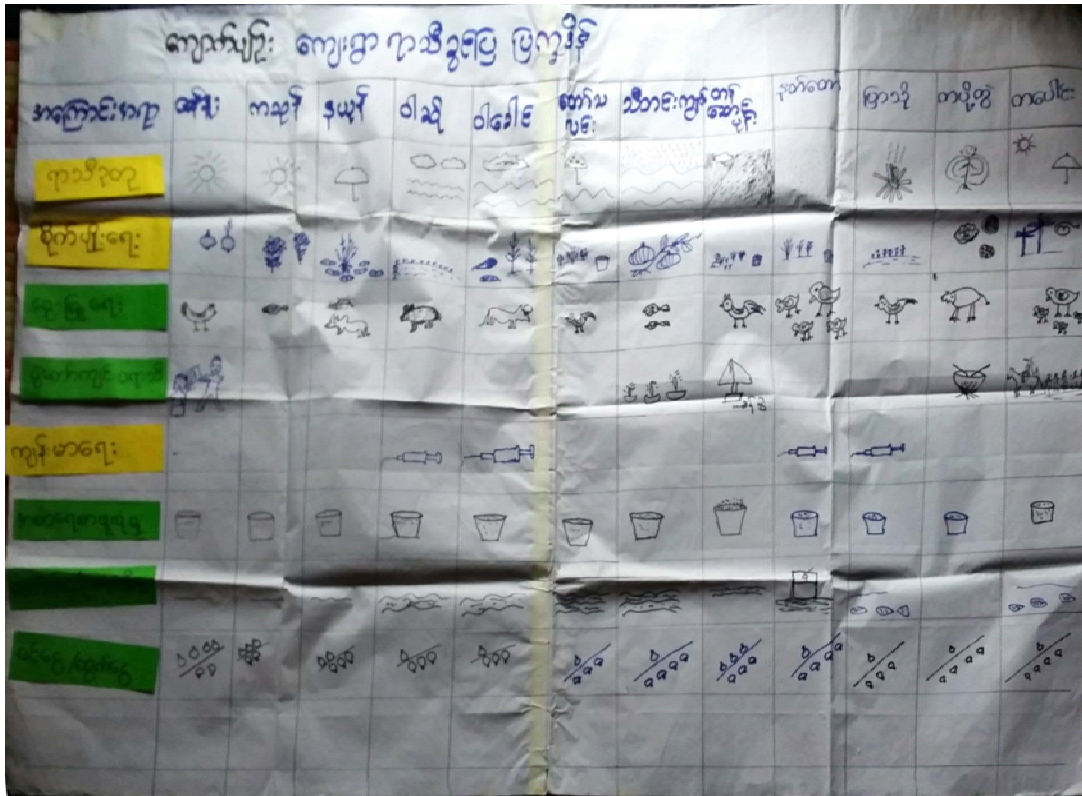 ကျောက်ပျဉ်း ကျေးရွာ ရာသီခွင်ပြ ပြက္ခဒိန်
အကြောင်းအရာ တန်ခူး ကဆုန် နယုန် ဝါဆို ဝါခေါင် တော်သလင်း သီတင်းကျွတ် တန်ဆောင်မုန်း နတ်တော် ပြာသို တပို့တွဲ တပေါင်း
ရာသီဥတု
စိုက်ပျိုးရေး
မွေးမြူရေး
ကျန်းမာရေး
ဝင်ငွေ/ထွက်ငွေ